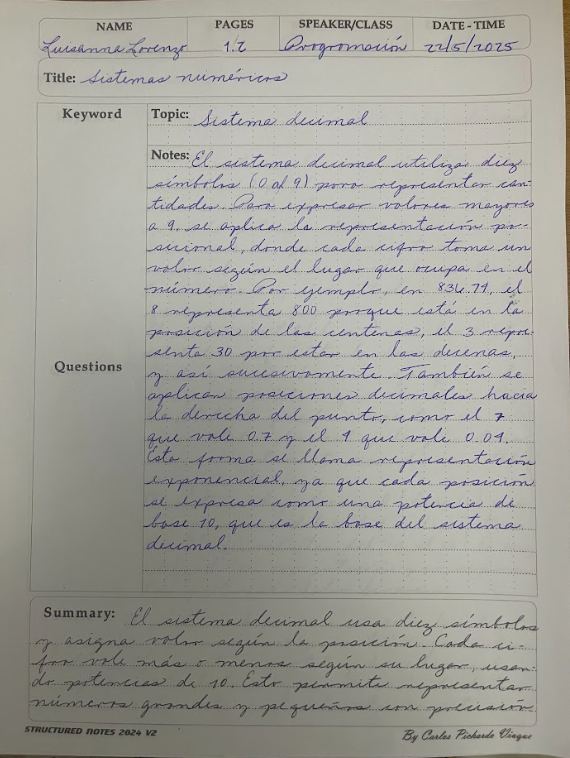 NAME PAGES SPEAKER/CLASS DATE - TIME
Luisanna Lorenzo 1.2 Programación 22/5/2025
Title: Sistemas numéricos
Keyword Topic: Sistema decimal
Notes: El sistema decimal utiliza diez
símbolos (0 al 9) para representar can-
tidades. Para expresar valores mayores
a 9, se aplica la representación po-
sicional, donde cada cifra toma un
valor según el lugar que ocupa en el
número. Por ejemplo, en 836.74, el
8 representa 800 porque está en la
posición de las centenas, el 3 repre-
Questions
senta 30 por estar en las decenas,
y así sucesivamente. También se
aplican posiciones decimales hacia
la derecha del punto, como el 7
que vale 0.7 y el 4 que vale 0.04.
Esta forma se llama representación
exponencial, ya que cada posición
se expresa como una potencia de
base 10, que es la base del sistema
decimal.
Summary: El sistema decimal usa diez símbolos
y asigna valor según la posición. Cada ci-
fra vale más o menos según su lugar, usan-
do potencias de 10. Esto permite representar
números grandes y pequeños con precisión
STRUCTURED NOTES 2024 V2 By Carlos Pichardo Viuque